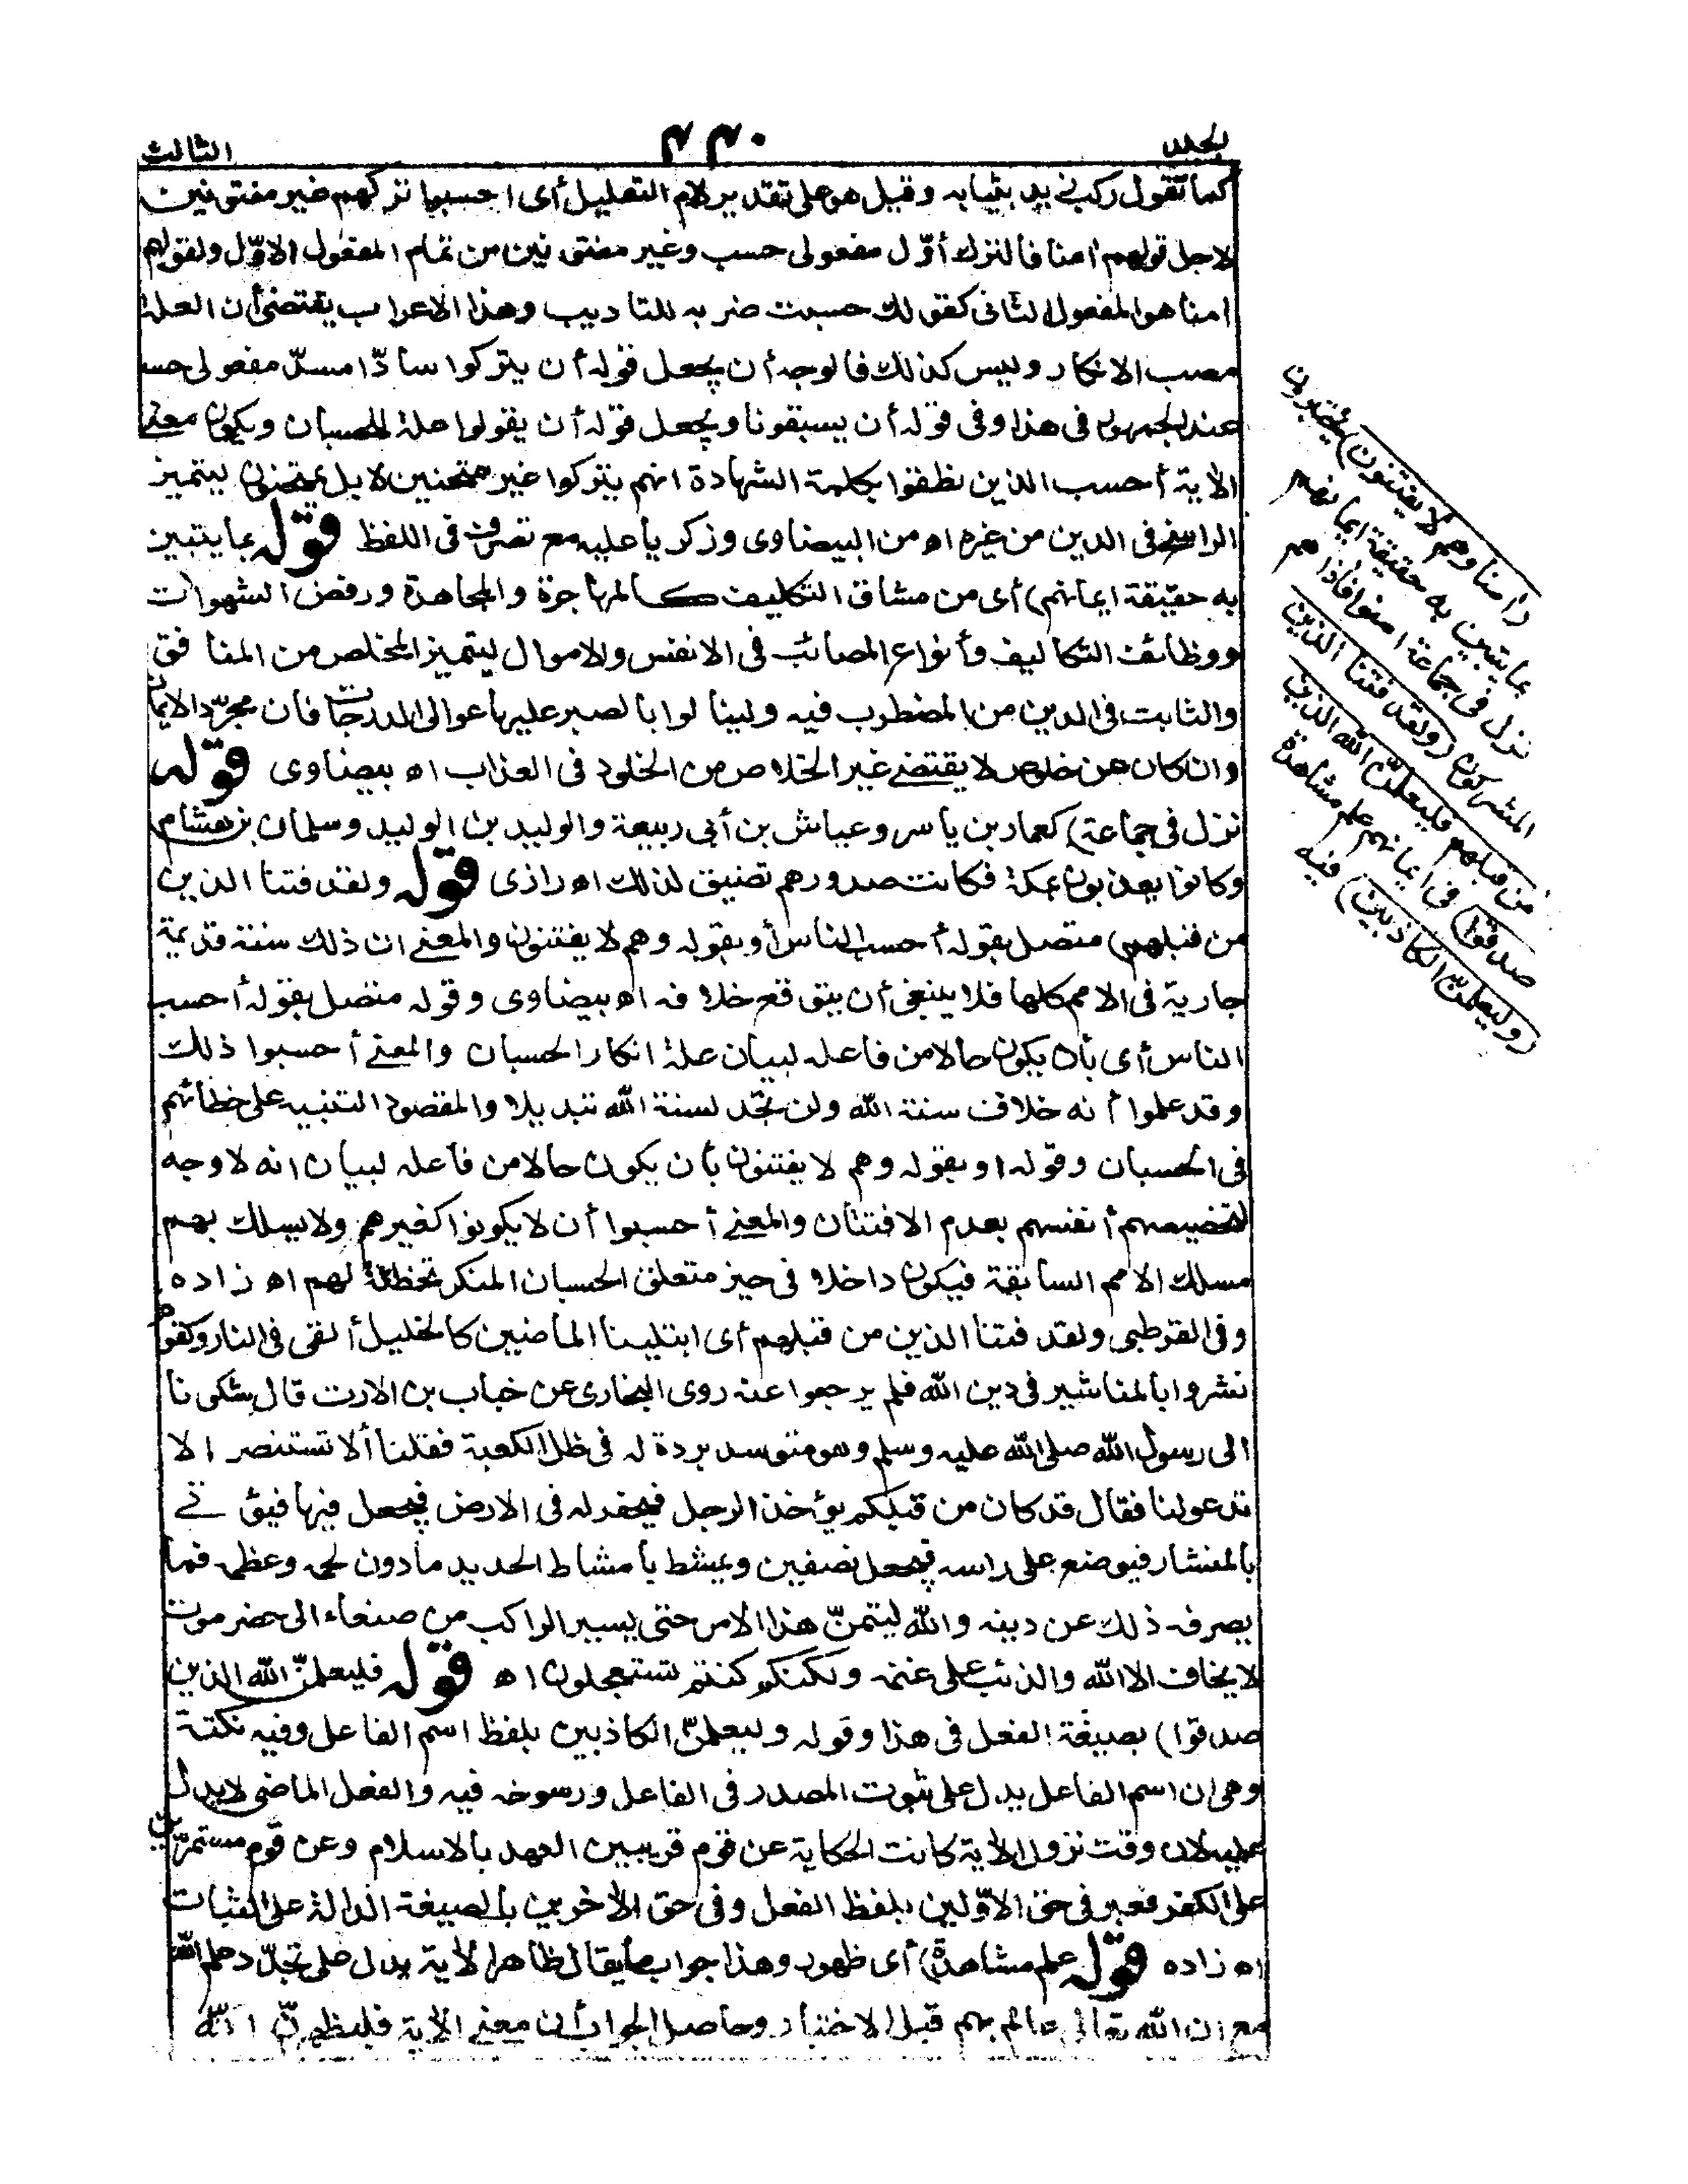 الجلد
٤٤٠
الثالث
كما تقول ركب زيد بثيابه وقيل هو على تقدير لام التعليل أى احسبوا تركهم غير مفتونين
لاجل قولهم امنا فالترك أوّل مفعولى حسب وغير مفتونين من تمام المفعول الاوّل ولقولهم
امنا هو المفعول الثانى كقولك حسبت ضربه للتاديب وهذا الاعراب يقتضى أن العلة
مصب الانكار وليس كذلك فالوجه أن يجعل قوله أن يتركوا سادّا مسدّ مفعولى حسب
عند الجمهور فى هذا وفى قوله أن يسبقونا ويجعل قوله أن يقولوا علة للحسبان ويكون معنى
الاٰية أحسب الذين نطقوا بكلمة الشهادة انهم يتركوا غير ممتحنين لا بل يمتحنون ليتميز
الراسخ فى الدين من غيره اه من البيضاوى وزكريا عليه مع تصرف فى اللفظ قوله بما يتبين
به حقيقة ايمانهم) أى من مشاق التكليف كالمهاجرة والمجاهدة ورفض الشهوات
ووظائف التكاليف وأنواع المصائب فى الانفس والاموال ليتميز المخلص من المنافق
والثابت فى الدين من المضطرب فيه ولينالوا بالصبر عليها عوالى الدرجات فان مجرّد الايمان
وان كان عن خلوص لا يقتضى غير الخلاص من الخلود فى العذاب اه بيضاوى قوله
نزل فى جماعة) كعمار بن ياسر وعياش بن أبى ربيعة والوليد بن الوليد وسلمان بن هشام
وكانوا يعذبون بمكة فكانت صدورهم تضيق لذلك اه رازى قوله ولقد فتنا الذين
من قبلهم) متصل بقوله أحسب الناس أو بقوله وهم لا يفتنون والمعنى ان ذلك سنة قديمة
جارية فى الامم كلها فلا ينبغى أن يتوقع خلافه اه بيضاوى وقوله متصل بقوله أحسب
الناس أى بان يكون حالا من فاعله لبيان علة انكار الحسبان والمعنى أحسبوا ذلك
وقد علموا أنه خلاف سنة الله ولن تجد لسنة الله تبديلا والمقصود التنبيه على خطائهم
فى الحسبان وقوله او بقوله وهم لا يفتنون بأن يكون حالا من فاعله لبيان انه لا وجه
لتخصيصهم أنفسهم بعدم الافتتان والمعنى أحسبوا أن لا يكونوا كغيرهم ولا يسلك بهم
مسلك الامم السابقة فيكون داخلا فى حيز متعلق الحسبان المنكر تخطئة لهم اه زاده
وفى القرطبى ولقد فتنا الذين من قبلهم أى ابتلينا الماضين كالخليل ألقى فى النار وكقوم
نشروا بالمناشير فى دين الله فلم يرجعوا عنه روى البخارى عن خباب بن الارت قال شكونا
الى رسول الله صلى الله عليه وسلم وهو متوسد بردة له فى ظل الكعبة فقلنا ألا تستنصر الا
تدعو لنا فقال قد كان من قبلكم يؤخذ الرجل فيحفر له فى الارض فيجعل فيها فيؤتى
بالمنشار فيوضع على راسه فيجعل نصفين ويمشط بأمشاط الحديد ما دون لحمه وعظمه فما
يصرفه ذلك عن دينه والله ليتمنّ هذا الامر حتى يسير الراكب من صنعاء الى حضرموت
لا يخاف الا الله والذئب على غنمه ولكنكم كنتم تستعجلون اه قوله فليعلمنّ الله الذين
صدقوا) بصيغة الفعل فى هذا وقوله وليعلمنّ الكاذبين بلفظ اسم الفاعل وفيه نكتة
وهى ان اسم الفاعل يدل على ثبوت المصدر فى الفاعل ورسوخه فيه والفعل الماضى لا يدل
عليه لان وقت نزول الاٰية كانت الحكاية عن قوم قريبين العهد بالاسلام وعن قوم مستمرّين
على الكفر فعبر فى حق الاوّلين بلفظ الفعل وفى حق الاٰخرين بالصيغة الدالة على الثبات
اه زاده قوله علم مشاهدة) أى ظهور وهذا جواب عما يقال ظاهر الاٰية يدل على تجدّد علم الله
مع ان الله تعالى عالم بهم قبل الاختبار وحاصل الجواب أن معنى الاٰية فليظهرنّ الله
(امنا وهم لا يفتنون) يختبرون
بما يتبين به حقيقة ايمانهم
نزل فى جماعة امنوا فاٰذاهم
المشركون (ولقد فتنا الذين
من قبلهم فليعلمنّ الله الذين
صدقوا) فى ايمانهم علم مشاهدة
(وليعلمنّ الكاذبين) فيه